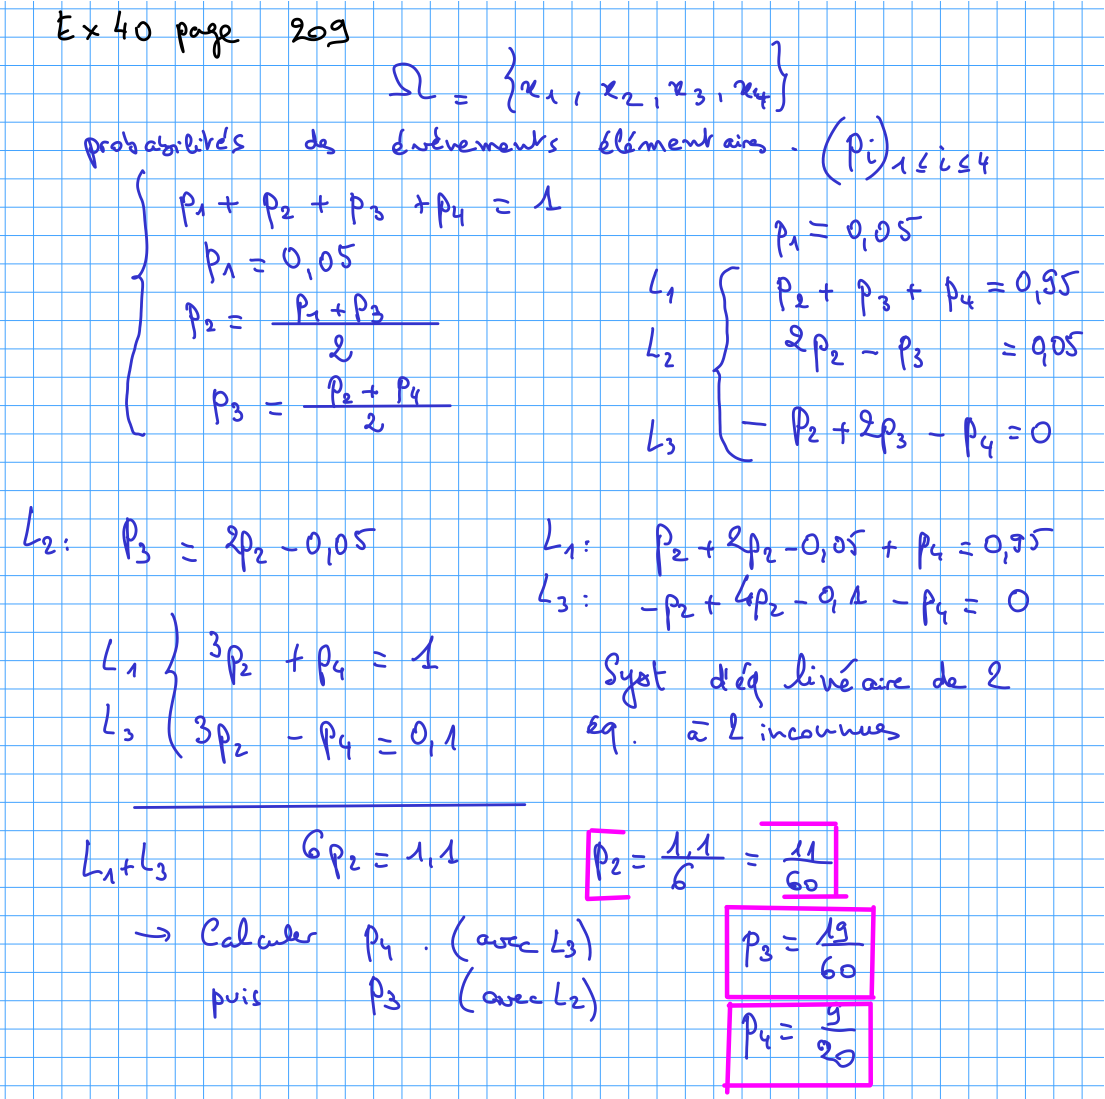 Ex 40 page 209
Ω = {x₁, x₂, x₃, x₄}
probabilités des événements élémentaires . (pᵢ)₁≤i≤4
p₁ + p₂ + p₃ + p₄ = 1
p₁ = 0,05
p₂ = (p₁ + p₃)/2
p₃ = (p₂ + p₄)/2
p₁ = 0,05
L₁ p₂ + p₃ + p₄ = 0,95
L₂ 2p₂ − p₃ = 0,05
L₃ − p₂ + 2p₃ − p₄ = 0
L₂: p₃ = 2p₂ − 0,05
L₁: p₂ + 2p₂ − 0,05 + p₄ = 0,95
L₃: −p₂ + 4p₂ − 0,1 − p₄ = 0
L₁ 3p₂ + p₄ = 1
L₃ 3p₂ − p₄ = 0,1
Syst d'éq linéaire de 2
éq. à 2 inconnues
L₁+L₃ 6p₂ = 1,1
p₂ = 1,1/6 = 11/60
→ Calculer p₄ . (avec L₃)
puis p₃ (avec L₂)
p₃ = 19/60
p₄ = 9/20